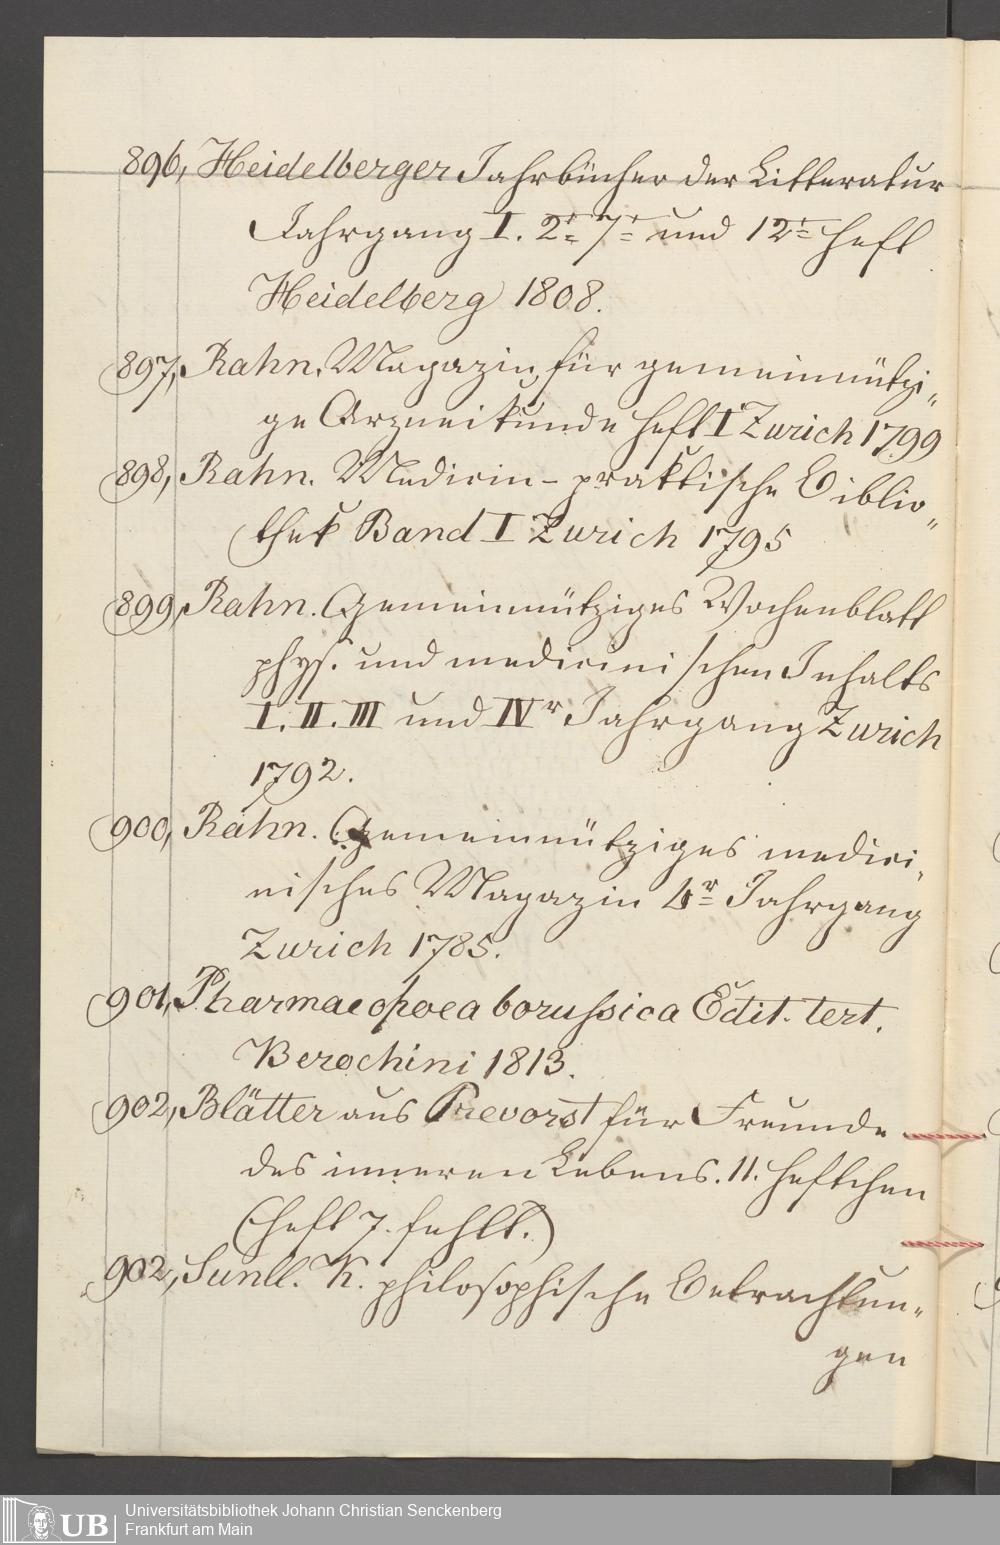 896, Heidelberger Jahrbücher der Litteratur
Jahrgang I. 2r 7r und 12r Heft
Heidelberg 1808.
897, Rahn. Magazin für gemeinnützi„
ge Arzneikunde Heft I Zurich 1799
898, Rahn. Medicin-praktische Biblio„
thek Band I Zurich 1795
899, Rahn. Gemeinnütziges Wochenblatt
phys. und medicinischen Inhalts
I. II. III und IVr Jahrgang Zurich
1792.
900, Rahn. Gemeinnütziges medici„
nisches Magazin 4r Jahrgang
Zurich 1785.
901, Pharmacopoea borussica Edit. tert.
Berochini 1813.
902, Blätter aus Prevorst für Freunde
des inneren Lebens. 11. Heftchen
(Heft 7. fehlt.)
902, K. philosophische Betrachtun„
gen
UB
Universitätsbibliothek Johann Christian Senckenberg
Frankfurt am Main